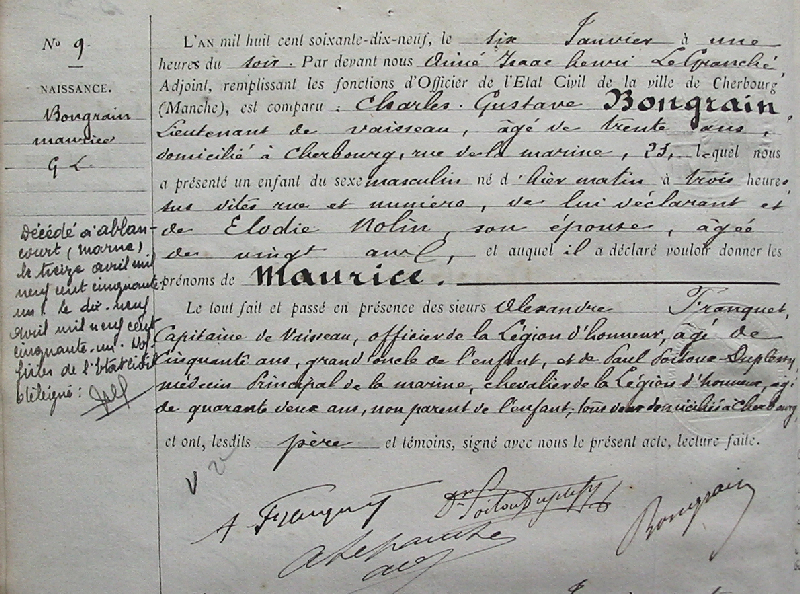 No 9
NAISSANCE.
Bongrain
maurice
G L
Décédé à ablan-
court (marne)
le treize avril mil
neuf cent cinquante
un. le dix-neuf
avril mil neuf cent
cinquante-un.
de l'état civil
délégué:
L'AN mil huit cent soixante-dix-neuf, le six Janvier à une
heures du soir. Par devant nous Aimé Isaac henri LeGranché,
Adjoint, remplissant les fonctions d'Officier de l'Etat Civil de la ville de Cherbourg
(Manche), est comparu : Charles Gustave Bongrain
Lieutenant de vaisseau, âgé de trente ans,
domicilié à Cherbourg, rue de la marine, 21, lequel nous
a présenté un enfant du sexe masculin né d'hier matin à trois heures
sus dites rue et numéro, de lui déclarant et
de Elodie Nolin, son épouse, âgée
de vingt ans, et auquel il a déclaré vouloir donner les
prénoms de Maurice.
Le tout fait et passé en présence des sieurs Alexandre Franquet,
Capitaine de Vaisseau, officier de la Légion d'honneur, âgé de
Cinquante ans, grand oncle de l'enfant, et de Paul Poitou-Duplessy,
médecin Principal de la marine, chevalier de la Légion d'honneur, âgé
de quarante deux ans, non parent de l'enfant; tous deux domiciliés à Cherbourg,
et ont, lesdits père et témoins, signé avec nous le présent acte, lecture faite.
A Franquet Dr Poitou Duplessy Bongrain